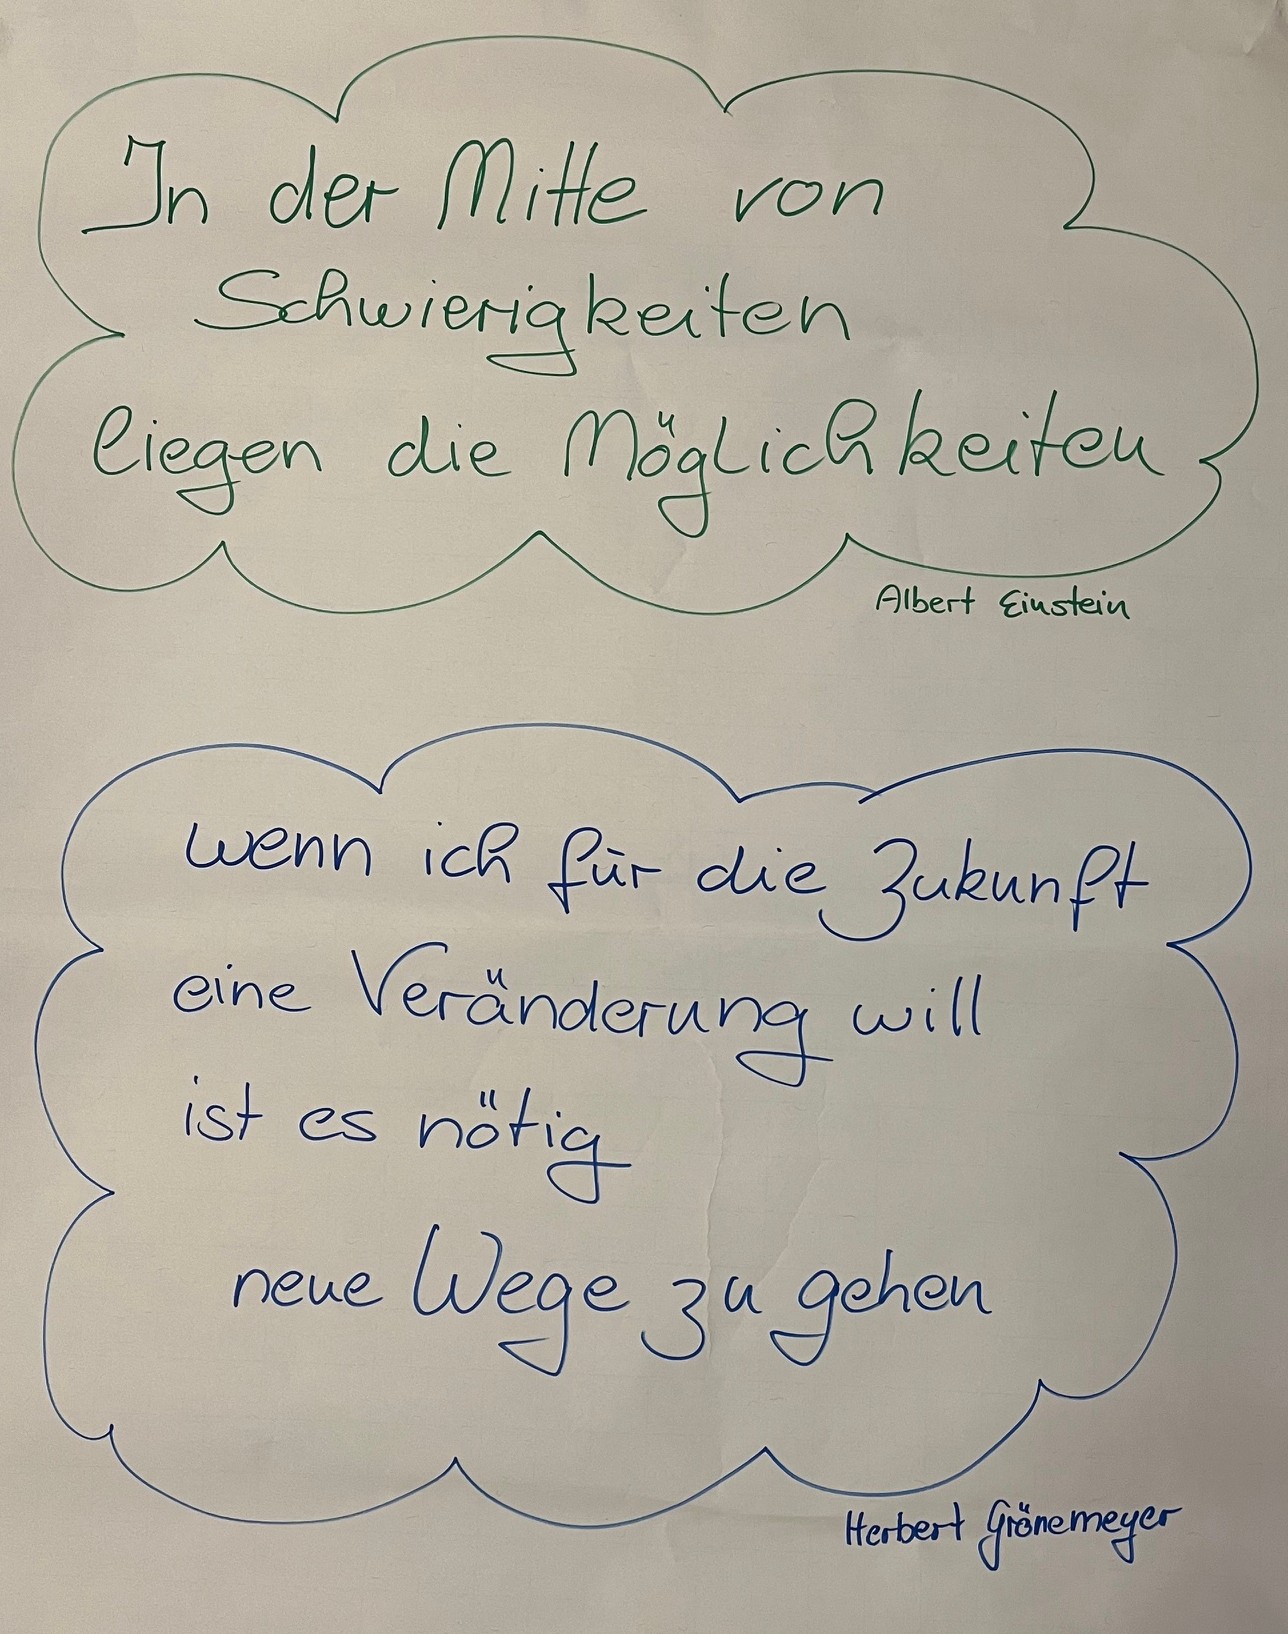 In der Mitte von
Schwierigkeiten
liegen die Möglichkeiten
Albert Einstein
wenn ich für die Zukunft
eine Veränderung will
ist es nötig
neue Wege zu gehen
Herbert Grönemeyer